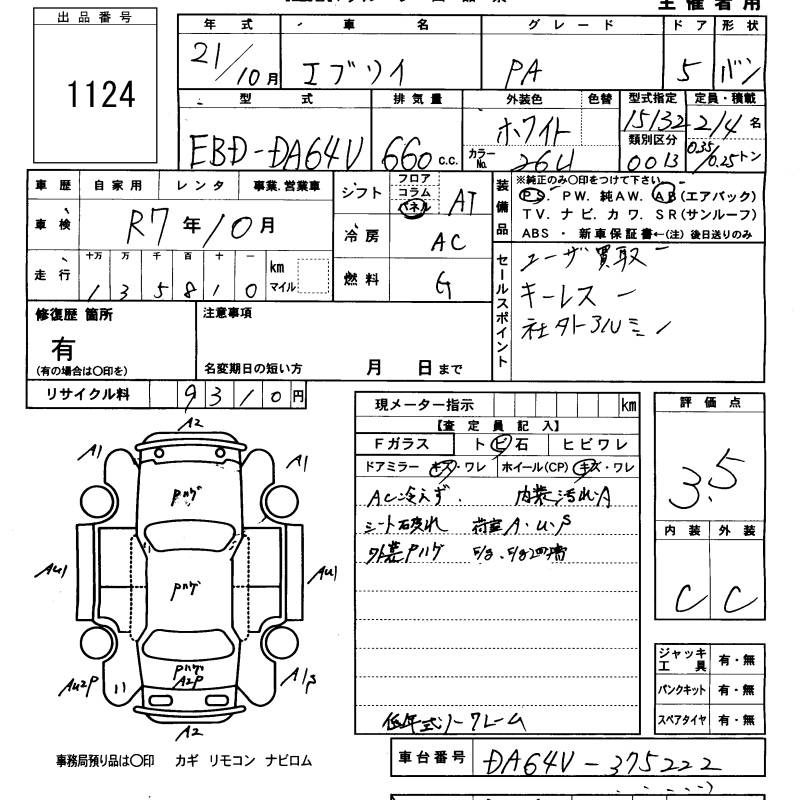 主催者用
出品番号
1124
年式 車名 グレード ドア 形状
21/10月 エブリイ PA 5 バン
型式 排気量 外装色 色替 型式指定 定員・積載
EBD-DA64V 660 c.c. ホワイト 15132 2/4名
カラーNo. 26U 類別区分 0013 0.35/0.25トン
車歴 自家用 レンタ 事業.営業車
車検 R7年10月
走行 十万 万 千 百 十 一 km マイル
135810
シフト フロア コラム パネル AT
冷房 AC
燃料 G
装備品
※純正のみ〇印をつけて下さい
PS. PW. 純AW. AB(エアバック)
TV. ナビ. カワ. SR(サンルーフ)
ABS ・ 新車保証書←(注) 後日送りのみ
セールスポイント
ユーザー買取
キーレス
社外アルミ
修復歴 箇所
有
(有の場合は〇印を)
注意事項
名変期日の短い方 月 日まで
リサイクル料 9310円
現メーター指示 km
【査定員記入】
Fガラス トビ石 ヒビワレ
ドアミラー キズ・ワレ ホイール(CP) キズ・ワレ
AC冷えず. 内装汚れ.A
シート破れ 荷室A.U.S
外装Pハゲ
低年式ノークレーム
評価点
3.5
内装 外装
C C
ジャッキ工具 有・無
パンクキット 有・無
スペアタイヤ 有・無
A2
A1 A1
Pハゲ
AU1 AU1
Pハゲ
AU2P A1S
Pハゲ
A2P
A2
事務局預り品は〇印 カギ リモコン ナビロム
車台番号 DA64V-375222